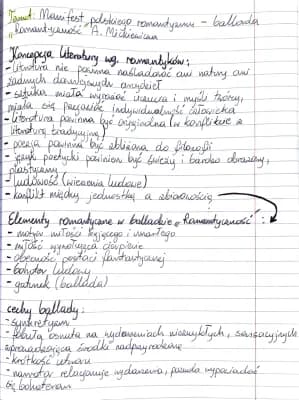 Temat: Manifest polskiego romantyzmu - ballada
„Romantyczność" A. Mickiewicza
Koncepcja literatury wg. romantyków:
- literatura nie powinna naśladować ani natury ani
żadnych dawniejszych
- sztuka miała wyrażać uczucia i myśli twórcy,
miała się indywidualność człowieka
- literatura powinna być oryginalna (w konflikcie z
literaturą tradycyjną)
- poezja powinna być zbliżona do filozofii
- język poetycki powinien być świeży i bardzo obrazowy,
plastyczny
- ludowość (wierzenia ludowe)
- konflikt między jednostką a zbiorowością
Elementy romantyczne w balladzie „Romantyczność":
- motyw miłości żyjącego i umarłego
- miłość wywołująca cierpienie
- obecność postaci fantastycznej
- bohater ludowy
- gatunek (ballada)
cechy ballady:
- synkretyzm
- fabuła osnuta na wydarzeniach niezwykłych, sensacyjnych
wprowadzająca środki nadprzyrodzone
- krótkość utworu
- narrator relacjonuje wydarzenia, pozwala wypowiadać
się bohaterom